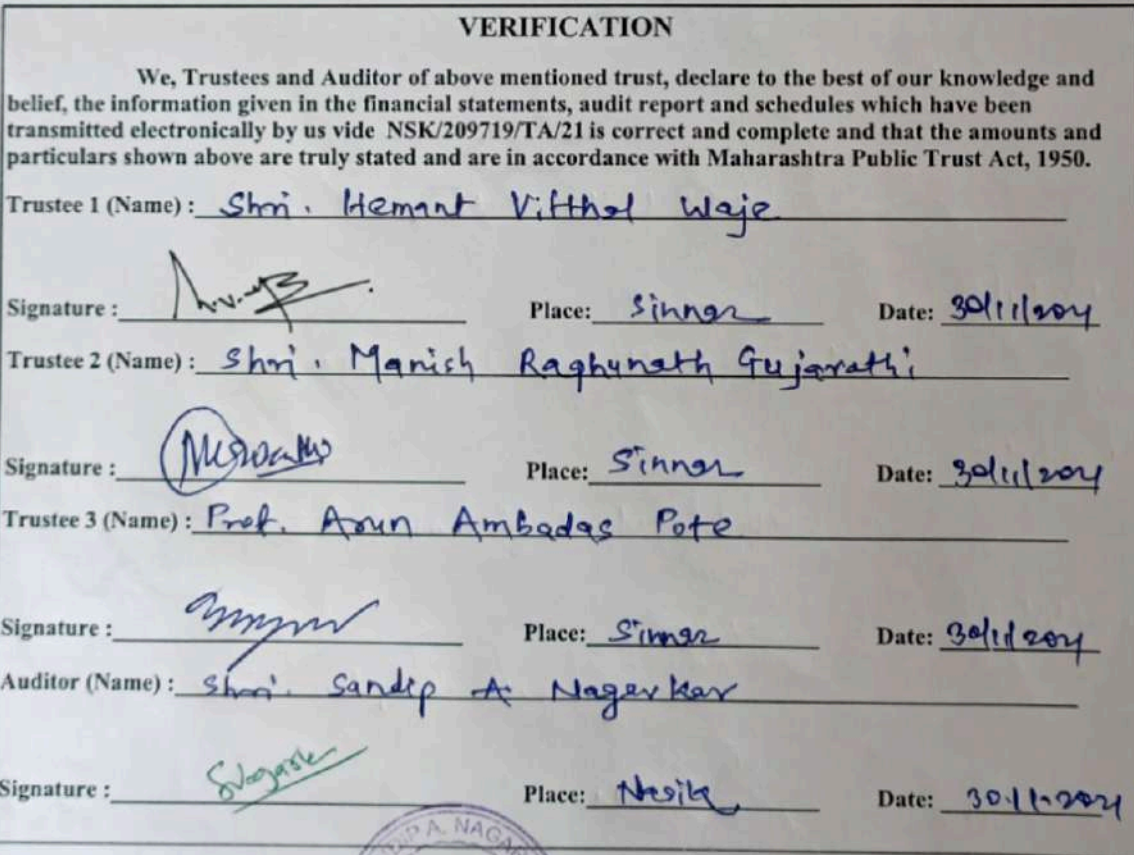 VERIFICATION
We, Trustees and Auditor of above mentioned trust, declare to the best of our knowledge and
belief, the information given in the financial statements, audit report and schedules which have been
transmitted electronically by us vide NSK/209719/TA/21 is correct and complete and that the amounts and
particulars shown above are truly stated and are in accordance with Maharashtra Public Trust Act, 1950.
Trustee 1 (Name) : Shri. Hemant Vitthal Waje
Signature : Place: Sinnar Date: 30/11/2021
Trustee 2 (Name) : Shri. Manish Raghunath Gujarathi
Signature : Place: Sinnar Date: 30/11/2021
Trustee 3 (Name) : Prof. Arun Ambadas Pote
Signature : Place: Sinnar Date: 30/11/2021
Auditor (Name) : Shri. Sandip A. Nagarkar
Signature : Place: Nasik Date: 30.11.2021
P A. NAGAR